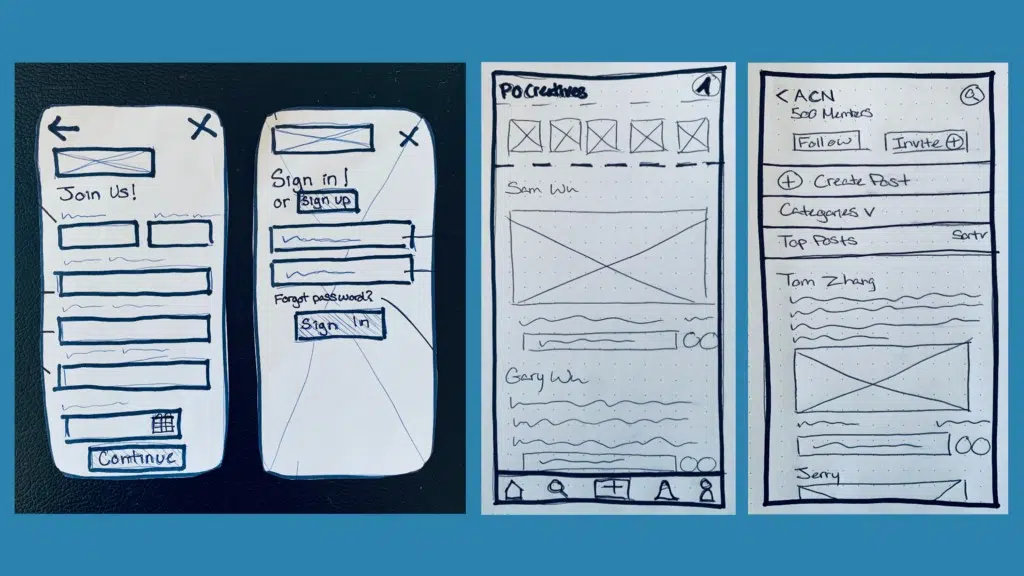 Join Us!
Continue
Sign in!
or sign up
Forgot password?
Sign In
PoCreatives
Sam Wu
Gary Wu
< ACN
500 Members
Follow
Invite +
+ Create Post
Categories v
Top Posts
Sort v
Tom Zhang
Jerry